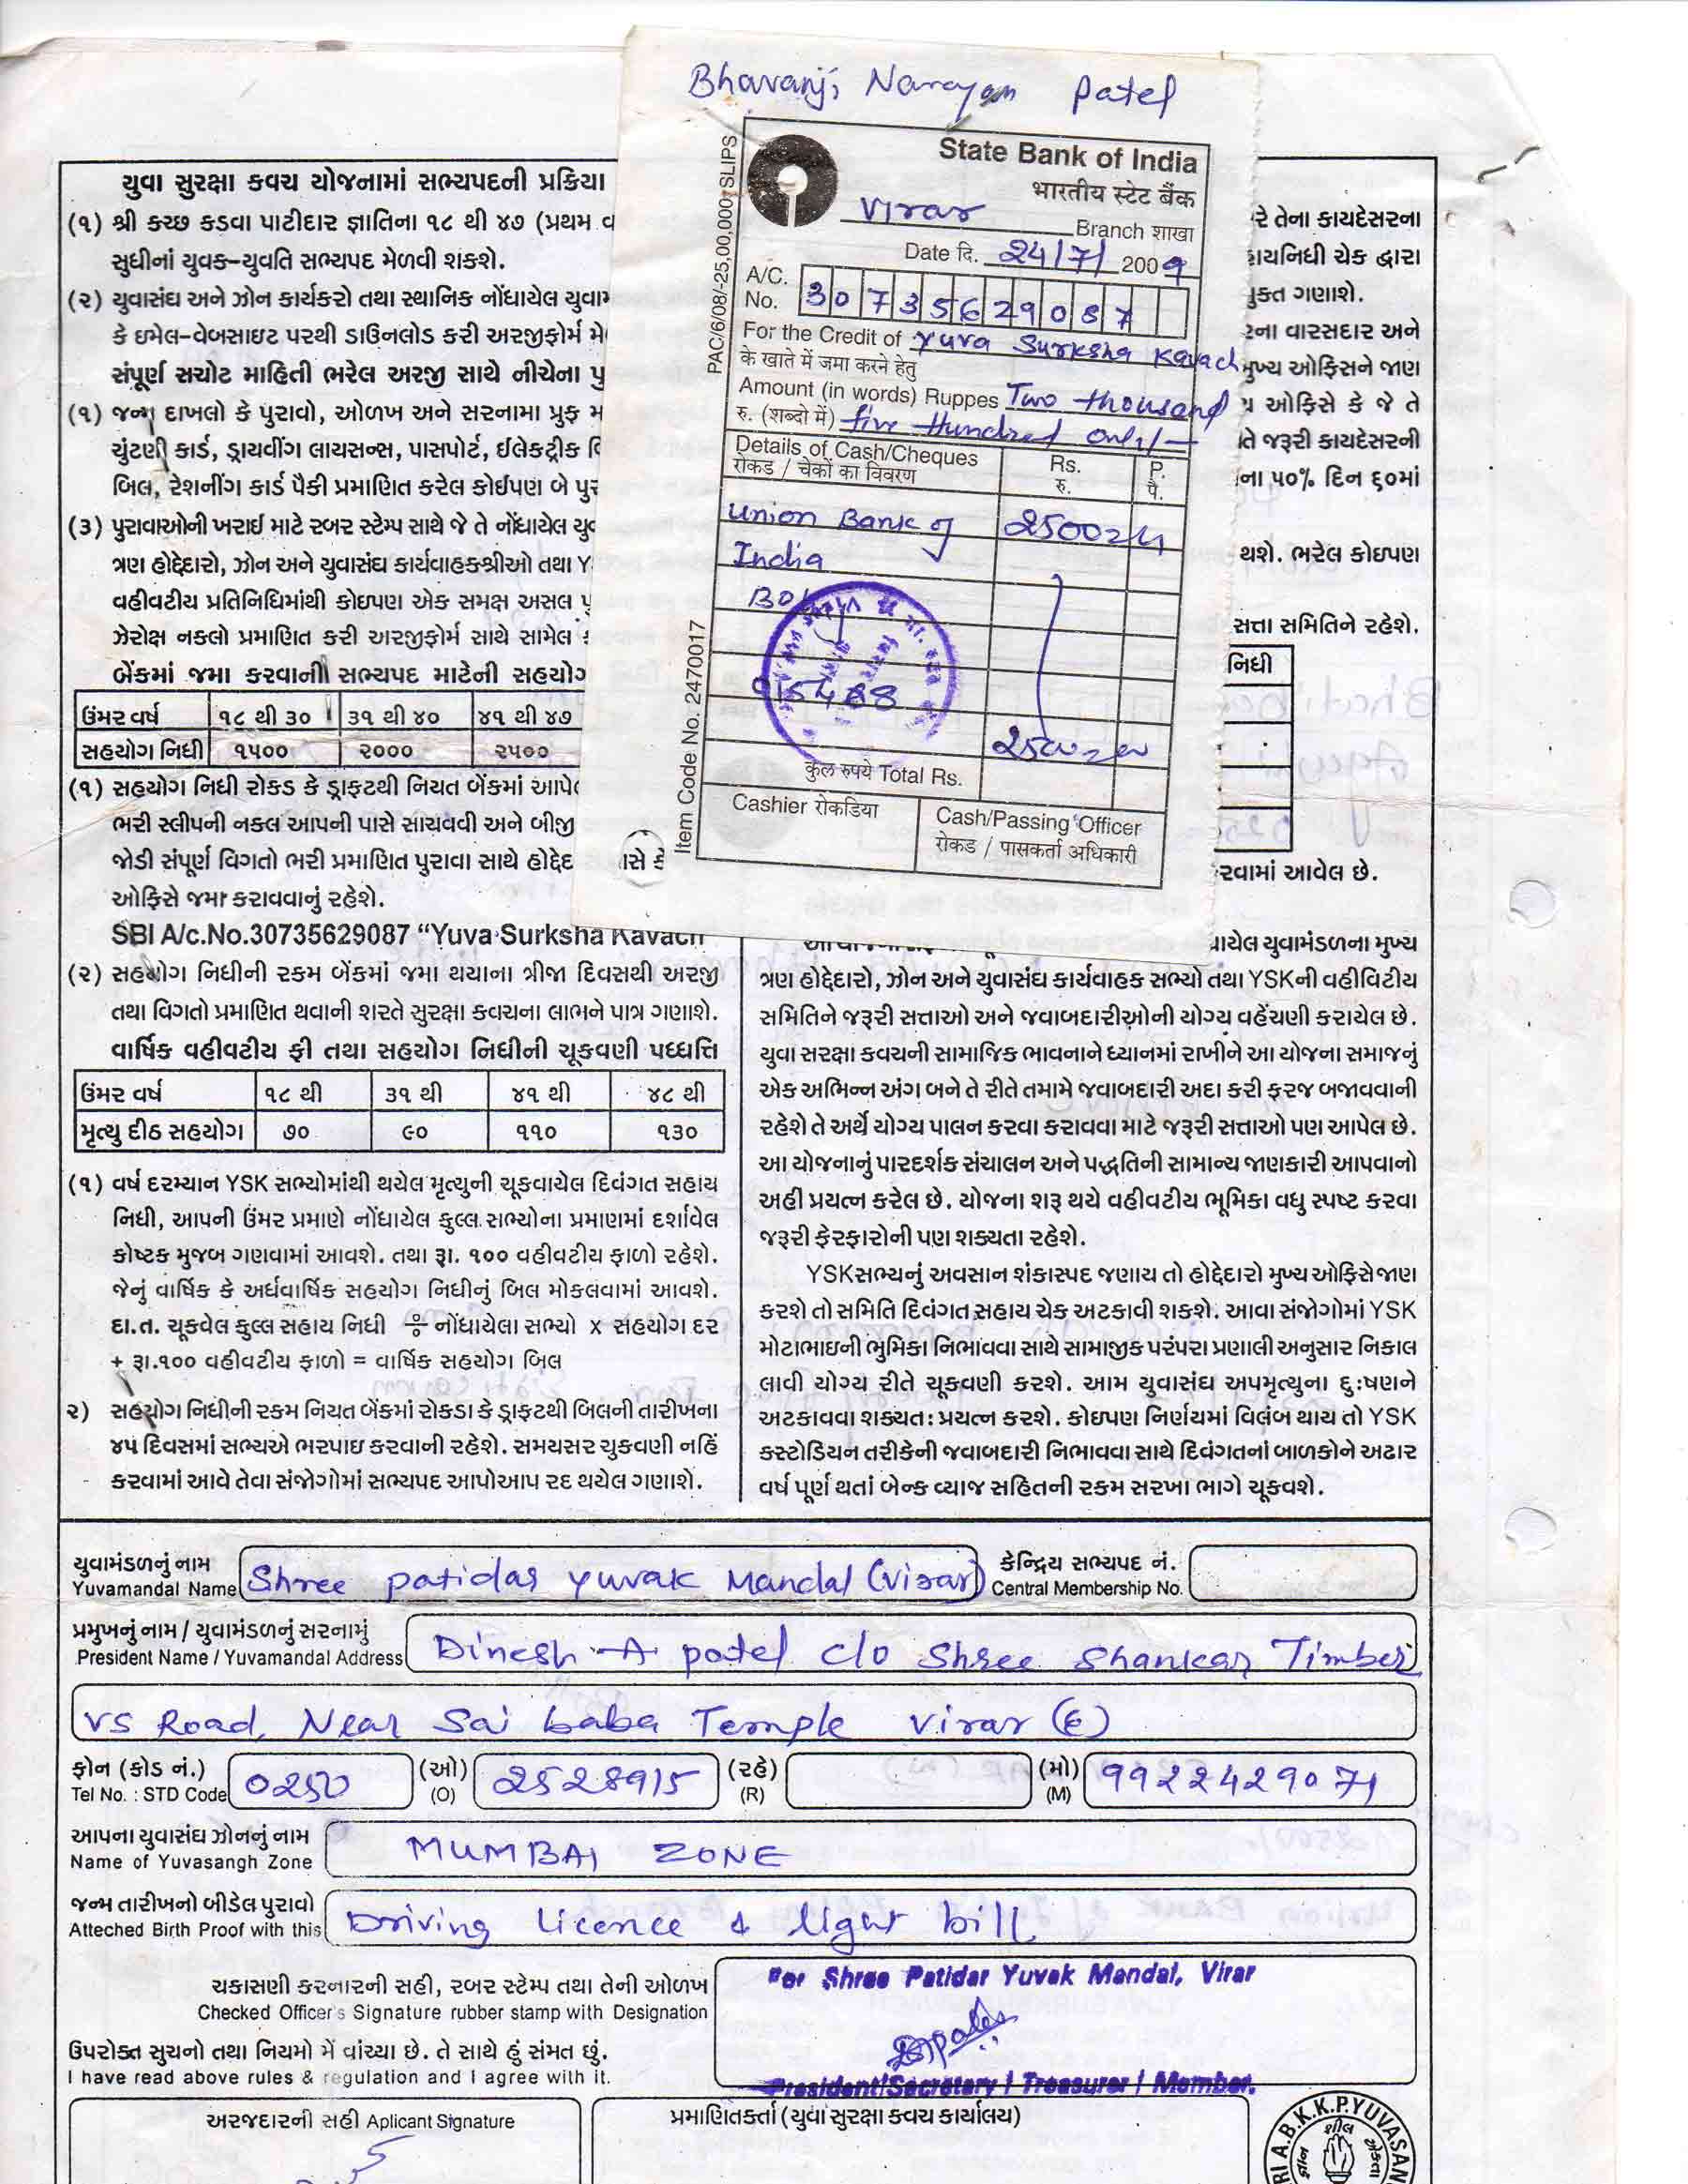 Bhavanji Narayan Patel
State Bank of India
भारतीय स्टेट बैंक
Virar
Branch शाखा
Date दि. 24/7/ 2009
A/C. No. 30735629087
For the Credit of Yuva Surksha Kavach
के खाते में जमा करने हेतु
Amount (in words) Ruppes Two thousand
रु. (शब्दो में) five Hundred only/-
Details of Cash/Cheques Rs. P.
रोकड / चेकों का विवरण रु. पै.
Union Bank of 2500
India
015488
कुल रुपये Total Rs.
Cashier रोकडिया
Cash/Passing Officer
रोकड / पासकर्ता अधिकारी
PAC/6/08/-25,00,000 SLIPS
Item Code No. 2470017
યુવા સુરક્ષા કવચ યોજનામાં સભ્યપદની પ્રક્રિયા
(૧) શ્રી કચ્છ કડવા પાટીદાર જ્ઞાતિના ૧૮ થી ૪૭ (પ્રથમ
સુધીનાં યુવક-યુવતિ સભ્યપદ મેળવી શકશે.
(૨) યુવાસંઘ અને ઝોન કાર્યકરો તથા સ્થાનિક નોંધાયેલ
કે ઇમેલ-વેબસાઇટ પરથી ડાઉનલોડ કરી અરજીફોર્મ
સંપૂર્ણ સચોટ માહિતી ભરેલ અરજી સાથે નીચેના
(૧) જન્મ દાખલો કે પુરાવો, ઓળખ અને સરનામા પ્રુફ
ચુંટણી કાર્ડ, ડ્રાયવીંગ લાયસન્સ, પાસપોર્ટ, ઈલેક્ટ્રીક
બિલ, રેશનીંગ કાર્ડ પૈકી પ્રમાણિત કરેલ કોઈપણ બે
(૩) પુરાવાઓની ખરાઈ માટે રબર સ્ટેમ્પ સાથે જે તે નોંધાયેલ
ત્રણ હોદ્દેદારો, ઝોન અને યુવાસંઘ કાર્યવાહકશ્રીઓ તથા
વહીવટીય પ્રતિનિધિમાંથી કોઇપણ એક સમક્ષ અસલ
ઝેરોક્ષ નકલો પ્રમાણિત કરી અરજીફોર્મ સાથે સામેલ
બેંકમાં જમા કરવાની સભ્યપદ માટેની સહયોગ
ઉંમર વર્ષ ૧૮ થી ૩૦ ૩૧ થી ૪૦ ૪૧ થી ૪૭
સહયોગ નિધી ૧૫૦૦ ૨૦૦૦ ૨૫૦૦
(૧) સહયોગ નિધી રોકડ કે ડ્રાફટથી નિયત બેંકમાં
ભરી સ્લીપની નકલ આપની પાસે સાચવવી અને બીજી
જોડી સંપૂર્ણ વિગતો ભરી પ્રમાણિત પુરાવા સાથે
ઓફિસે જમા કરાવવાનું રહેશે.
SBI A/c.No.30735629087 “Yuva Surksha Kavach
(૨) સહયોગ નિધીની રકમ બેંકમાં જમા થયાના ત્રીજા દિવસથી અરજી
તથા વિગતો પ્રમાણિત થવાની શરતે સુરક્ષા કવચના લાભને પાત્ર ગણાશે.
વાર્ષિક વહીવટીય ફી તથા સહયોગ નિધીની ચૂકવણી પધ્ધતિ
ઉંમર વર્ષ ૧૮ થી ૩૧ થી ૪૧ થી ૪૮ થી
મૃત્યુ દીઠ સહયોગ ૭૦ ૯૦ ૧૧૦ ૧૩૦
(૧) વર્ષ દરમ્યાન YSK સભ્યોમાંથી થયેલ મૃત્યુની ચૂકવાયેલ દિવંગત સહાય
નિધી, આપની ઉંમર પ્રમાણે નોંધાયેલ કુલ્લ સભ્યોના પ્રમાણમાં દર્શાવેલ
કોષ્ટક મુજબ ગણવામાં આવશે. તથા રૂા. ૧૦૦ વહીવટીય ફાળો રહેશે.
જેનું વાર્ષિક કે અર્ધવાર્ષિક સહયોગ નિધીનું બિલ મોકલવામાં આવશે.
દા.ત. ચૂકવેલ કુલ્લ સહાય નિધી ÷ નોંધાયેલા સભ્યો x સહયોગ દર
+ રૂા.૧૦૦ વહીવટીય ફાળો = વાર્ષિક સહયોગ બિલ
૨) સહયોગ નિધીની રકમ નિયત બેંકમાં રોકડા કે ડ્રાફટથી બિલની તારીખના
૪૫ દિવસમાં સભ્યએ ભરપાઇ કરવાની રહેશે. સમયસર ચુકવણી નહિં
કરવામાં આવે તેવા સંજોગોમાં સભ્યપદ આપોઆપ રદ થયેલ ગણાશે.
રે તેના કાયદેસરના
હાયનિધી ચેક દ્વારા
યુક્ત ગણાશે.
રના વારસદાર અને
મુખ્ય ઓફિસને જાણ
ઓફિસે કે જે તે
તે જરૂરી કાયદેસરની
ના ૫૦% દિન ૬૦માં
થશે. ભરેલ કોઇપણ
સત્તા સમિતિને રહેશે.
નિધી
રવામાં આવેલ છે.
ાયેલ યુવામંડળના મુખ્ય
ત્રણ હોદ્દેદારો, ઝોન અને યુવાસંઘ કાર્યવાહક સભ્યો તથા YSKની વહીવિટીય
સમિતિને જરૂરી સત્તાઓ અને જવાબદારીઓની યોગ્ય વહેંચણી કરાયેલ છે.
યુવા સરક્ષા કવચની સામાજિક ભાવનાને ધ્યાનમાં રાખીને આ યોજના સમાજનું
એક અભિન્ન અંગ બને તે રીતે તમામે જવાબદારી અદા કરી ફરજ બજાવવાની
રહેશે તે અર્થે યોગ્ય પાલન કરવા કરાવવા માટે જરૂરી સત્તાઓ પણ આપેલ છે.
આ યોજનાનું પારદર્શક સંચાલન અને પદ્ધતિની સામાન્ય જાણકારી આપવાનો
અહી પ્રયત્ન કરેલ છે. યોજના શરૂ થયે વહીવટીય ભૂમિકા વધુ સ્પષ્ટ કરવા
જરૂરી ફેરફારોની પણ શક્યતા રહેશે.
YSKસભ્યનું અવસાન શંકાસ્પદ જણાય તો હોદ્દેદારો મુખ્ય ઓફિસે જાણ
કરશે તો સમિતિ દિવંગત સહાય ચેક અટકાવી શકશે. આવા સંજોગોમાં YSK
મોટાભાઇની ભુમિકા નિભાવવા સાથે સામાજીક પરંપરા પ્રણાલી અનુસાર નિકાલ
લાવી યોગ્ય રીતે ચૂકવણી કરશે. આમ યુવાસંઘ અપમૃત્યુના દુઃષણને
અટકાવવા શક્યતઃ પ્રયત્ન કરશે. કોઇપણ નિર્ણયમાં વિલંબ થાય તો YSK
કસ્ટોડિયન તરીકેની જવાબદારી નિભાવવા સાથે દિવંગતનાં બાળકોને અઢાર
વર્ષ પૂર્ણ થતાં બેન્ક વ્યાજ સહિતની રકમ સરખા ભાગે ચૂકવશે.
યુવામંડળનું નામ કેન્દ્રિય સભ્યપદ નં.
Yuvamandal Name Shree Patidar Yuvak Mandal (Virar) Central Membership No.
પ્રમુખનું નામ / યુવામંડળનું સરનામું
President Name / Yuvamandal Address Dinesh A Patel C/o Shree Shankar Timber
VS Road, Near Sai baba Temple Virar (E)
ફોન (કોડ નં.) (ઓ) (રહે) (મો)
Tel No. : STD Code 0250 (O) 2528915 (R) (M) 9922429071
આપના યુવાસંઘ ઝોનનું નામ
Name of Yuvasangh Zone MUMBAI ZONE
જન્મ તારીખનો બીડેલ પુરાવો
Atteched Birth Proof with this Driving Licence & light bill
ચકાસણી કરનારની સહી, રબર સ્ટેમ્પ તથા તેની ઓળખ
Checked Officer's Signature rubber stamp with Designation
For Shree Patidar Yuvak Mandal, Virar
President/Secretary / Treasurer / Member.
ઉપરોક્ત સુચનો તથા નિયમો મેં વાંચ્યા છે. તે સાથે હું સંમત છું.
I have read above rules & regulation and I agree with it.
અરજદારની સહી Aplicant Signature
પ્રમાણિતકર્તા (યુવા સુરક્ષા કવચ કાર્યાલય)
A.B.K.K.P.YUVASAN